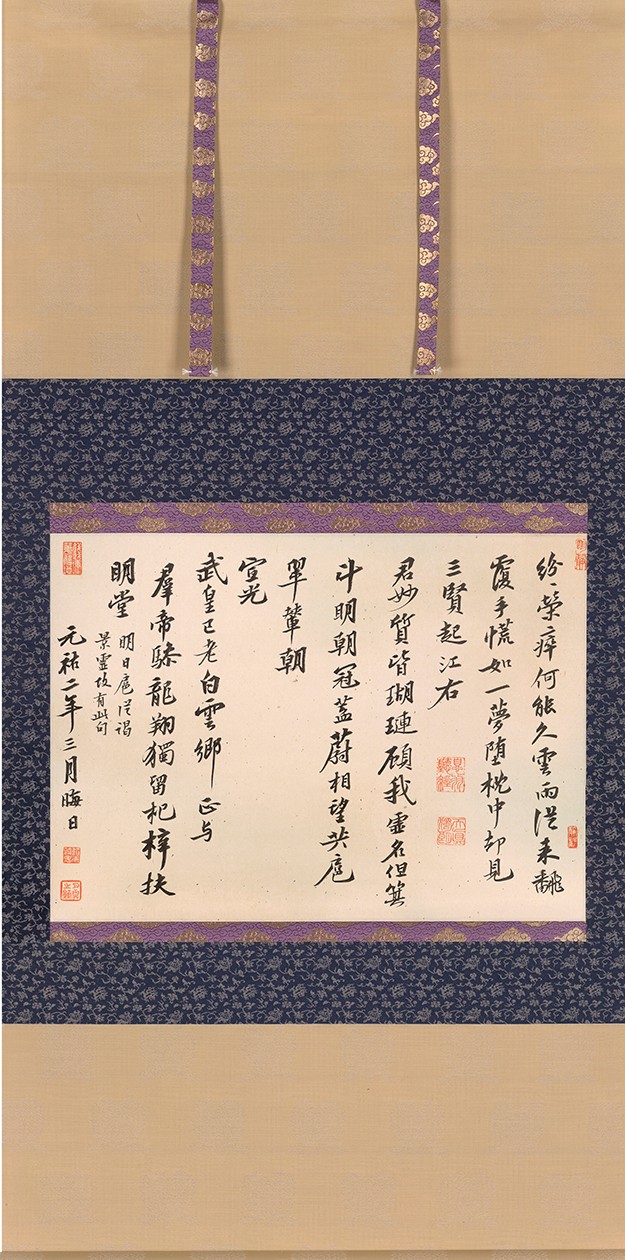 紛〻榮瘁何能久雲雨從来飜
覆手慌如一夢墮枕中却見
三賢起江右
君妙質皆瑚璉顧我虛名但箕
斗明朝冠蓋蔚相望共扈
翠輦朝
宣光
武皇已老白雲鄉正与
羣帝驂龍翔獨留杞梓扶
明堂
明日扈從謁
景靈故有此句
元祐二年三月晦日